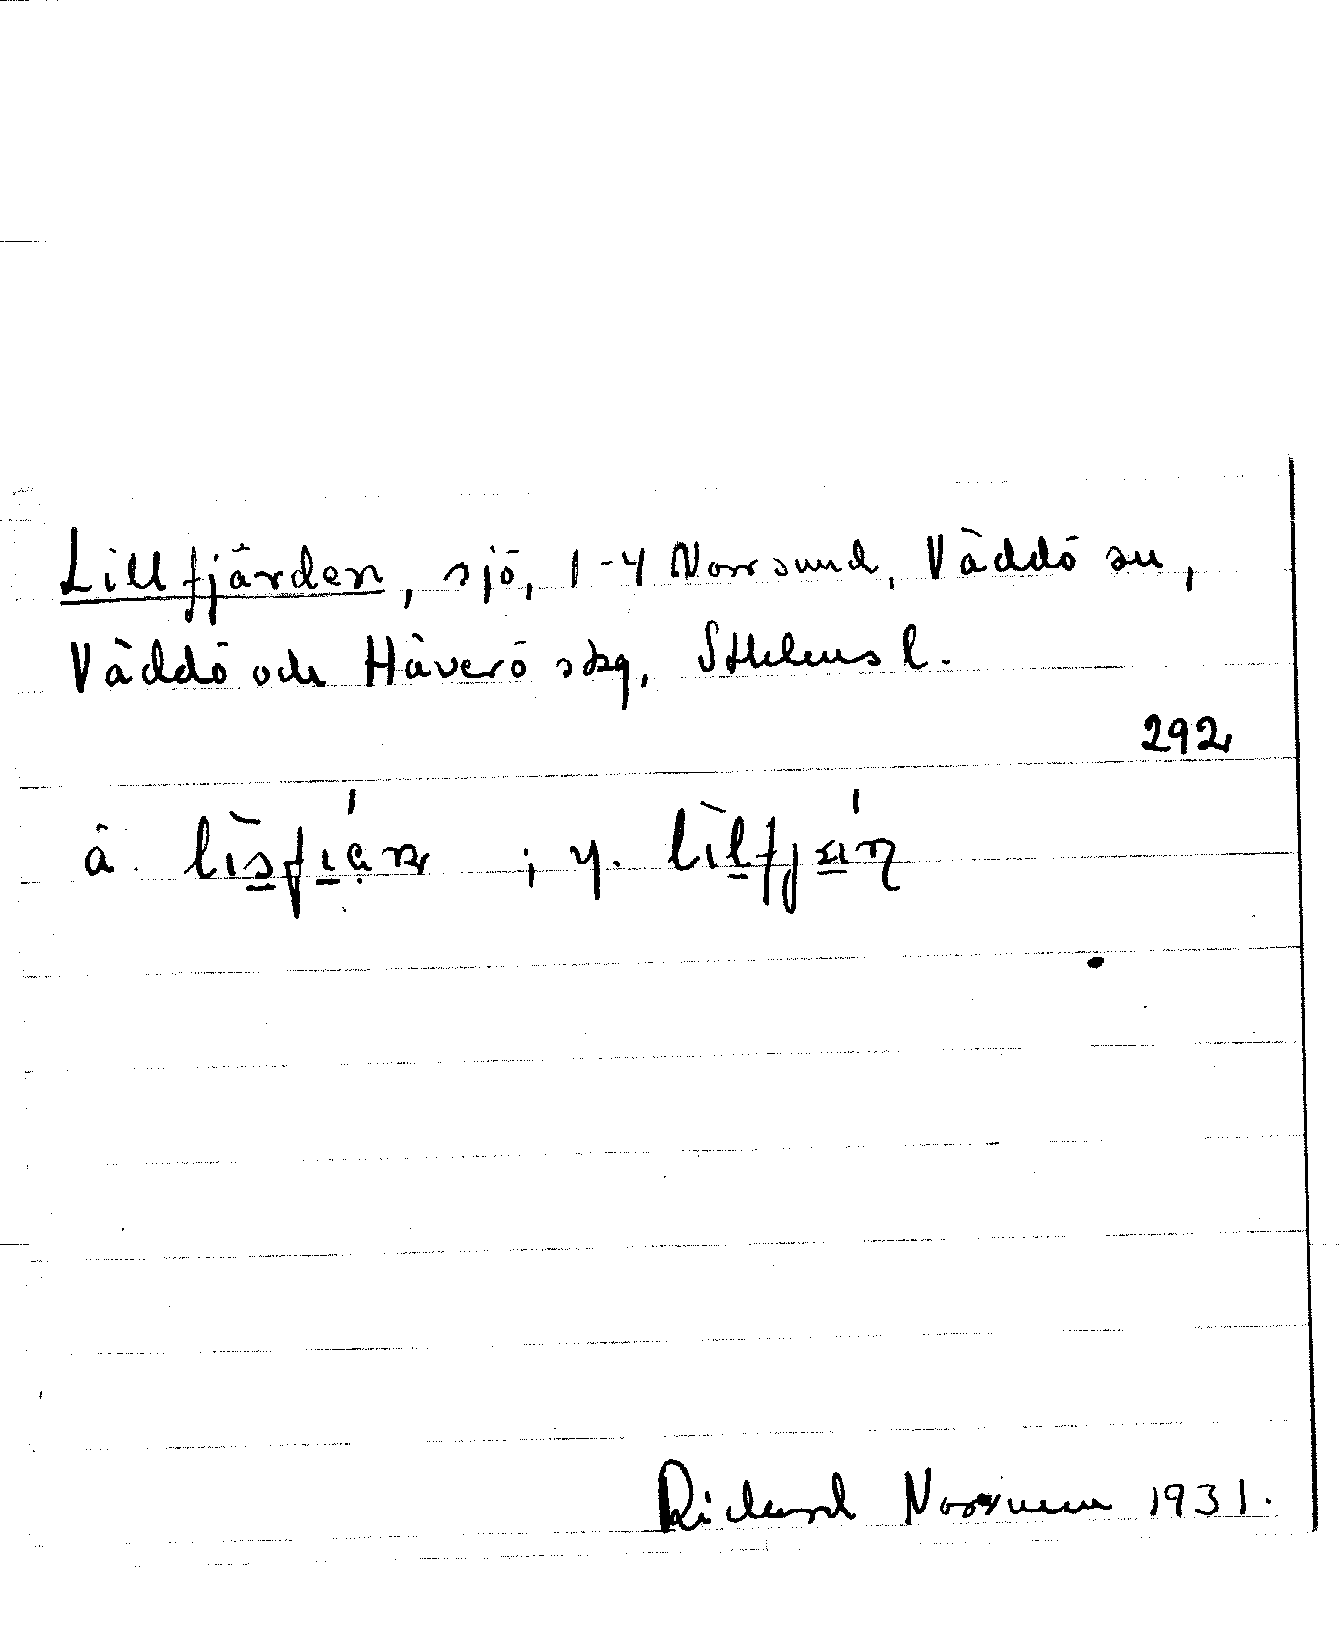 Lillfjärden, sjö, 1-4 Norrsund, Väddö sn,
Väddö och Häverö skg, Sthlms l.
292
ä. ; y.
Richard Norrman 1931.